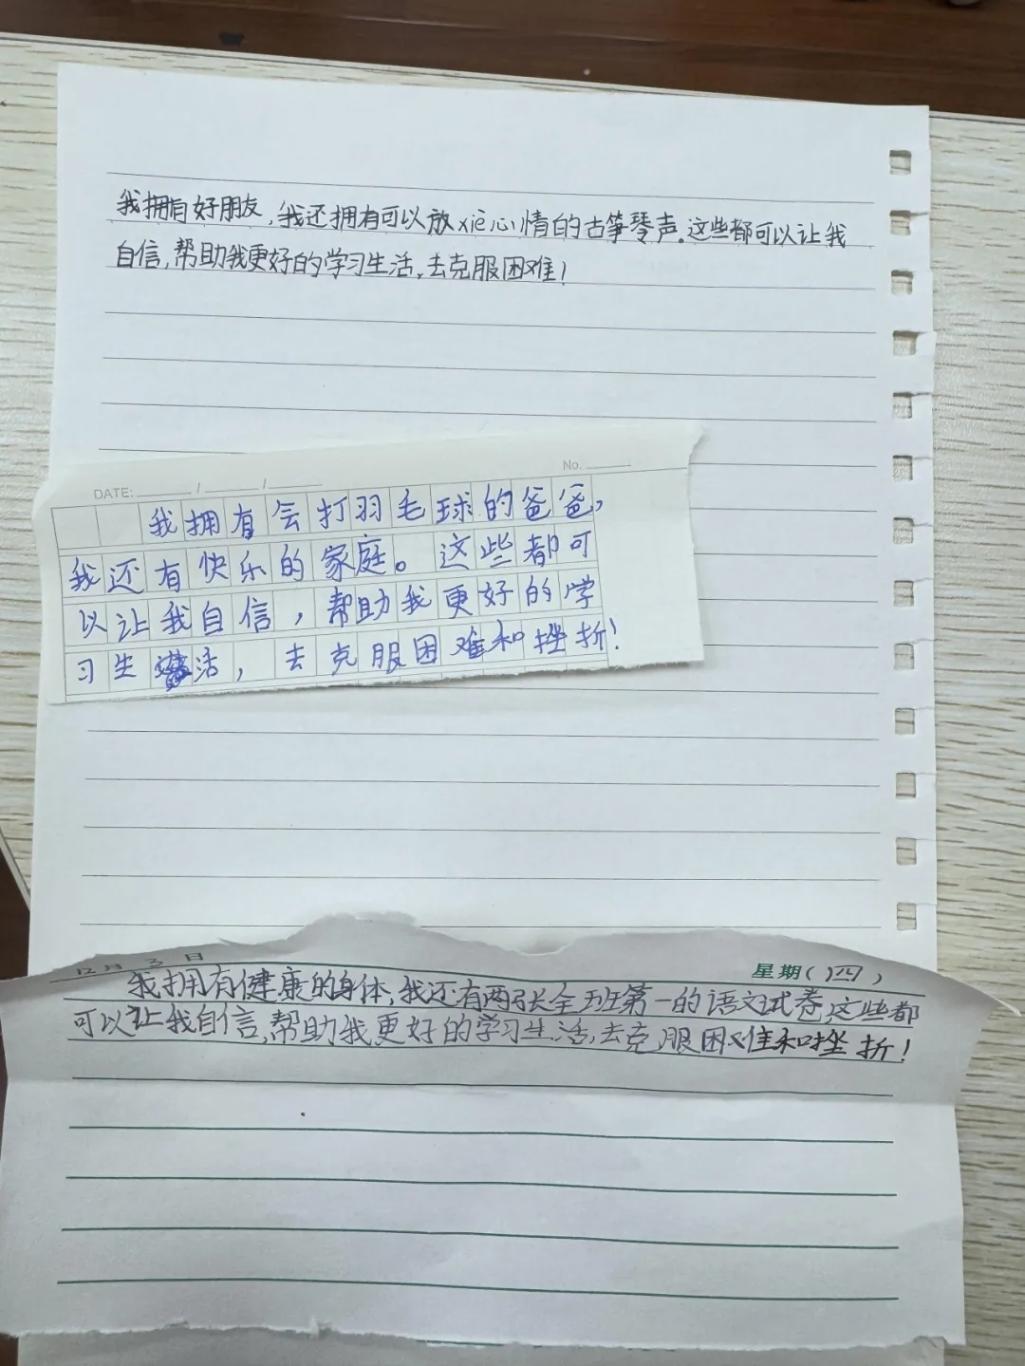 我拥有好朋友,我还拥有可以放xiè心情的古筝琴声.这些都可以让我
自信,帮助我更好的学习生活,去克服困难!
DATE: / / No.
我拥有会打羽毛球的爸爸,
我还有快乐的家庭。这些都可
以让我自信,帮助我更好的学
习生活,去克服困难和挫折!
12月3日 星期(四)
我拥有健康的身体,我还有两张全班第一的语文试卷,这些都
可以让我自信,帮助我更好的学习生活,去克服困难和挫折!